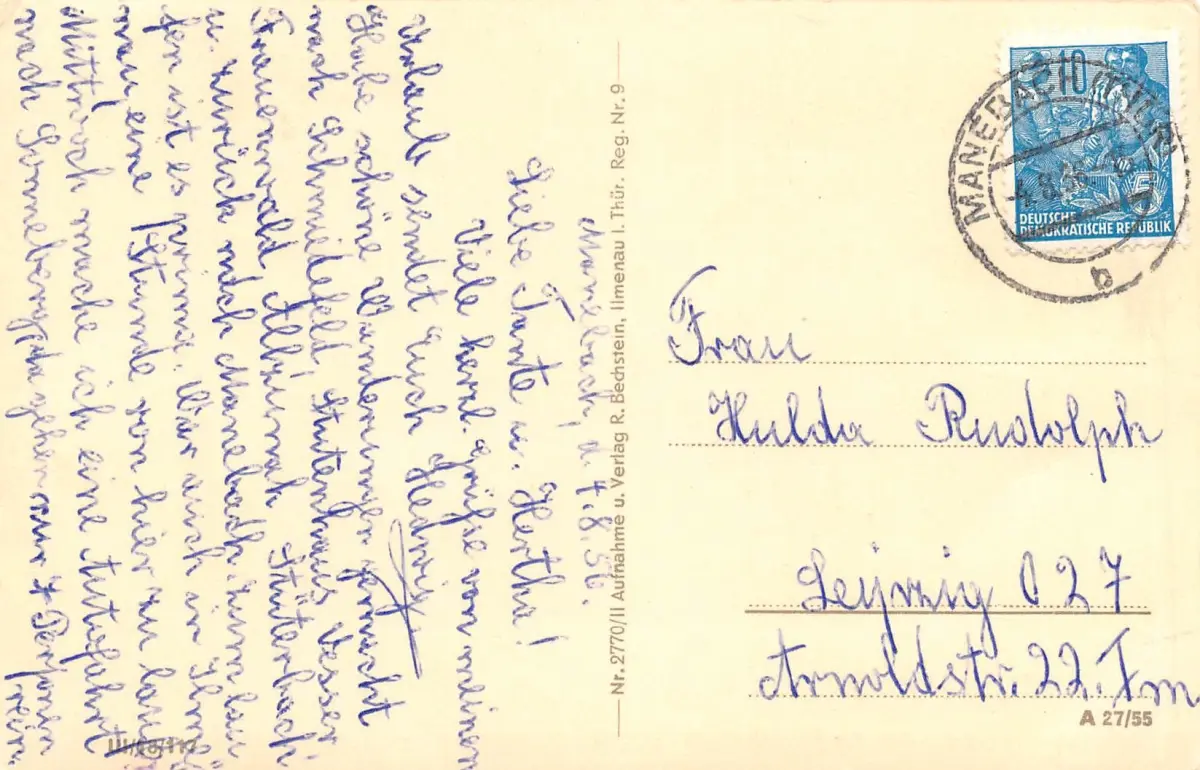 Manebach, d. 4.8.56.
Liebe Tante u. Hertha!
Viele herzl. Grüße von meinem
Urlaub sendet Euch Hedwig
Habe schöne Wanderungen gemacht
nach Schmiedefeld, Stutenhaus Vesser
Frauenwald, Allzunah, Stüterbach
u. zurück nach Manebach. Zum lau
fen ist es prima. War auch in Ilme
nau, eine Stunde von hier zu lau
Mittwoch mache ich eine Autofahrt
nach Sonneberg
gehen nur
rein.
Nr. 2770/II Aufnahme u. Verlag R. Bechstein, Ilmenau i. Thür. Reg. Nr. 9
III/18/117
10
DEUTSCHE
DEMOKRATISCHE REPUBLIK
MANEBACH (THÜR)
b
Frau
Hulda Rudolph
Leipzig O 27
Arnoldstr. 22.
A 27/55